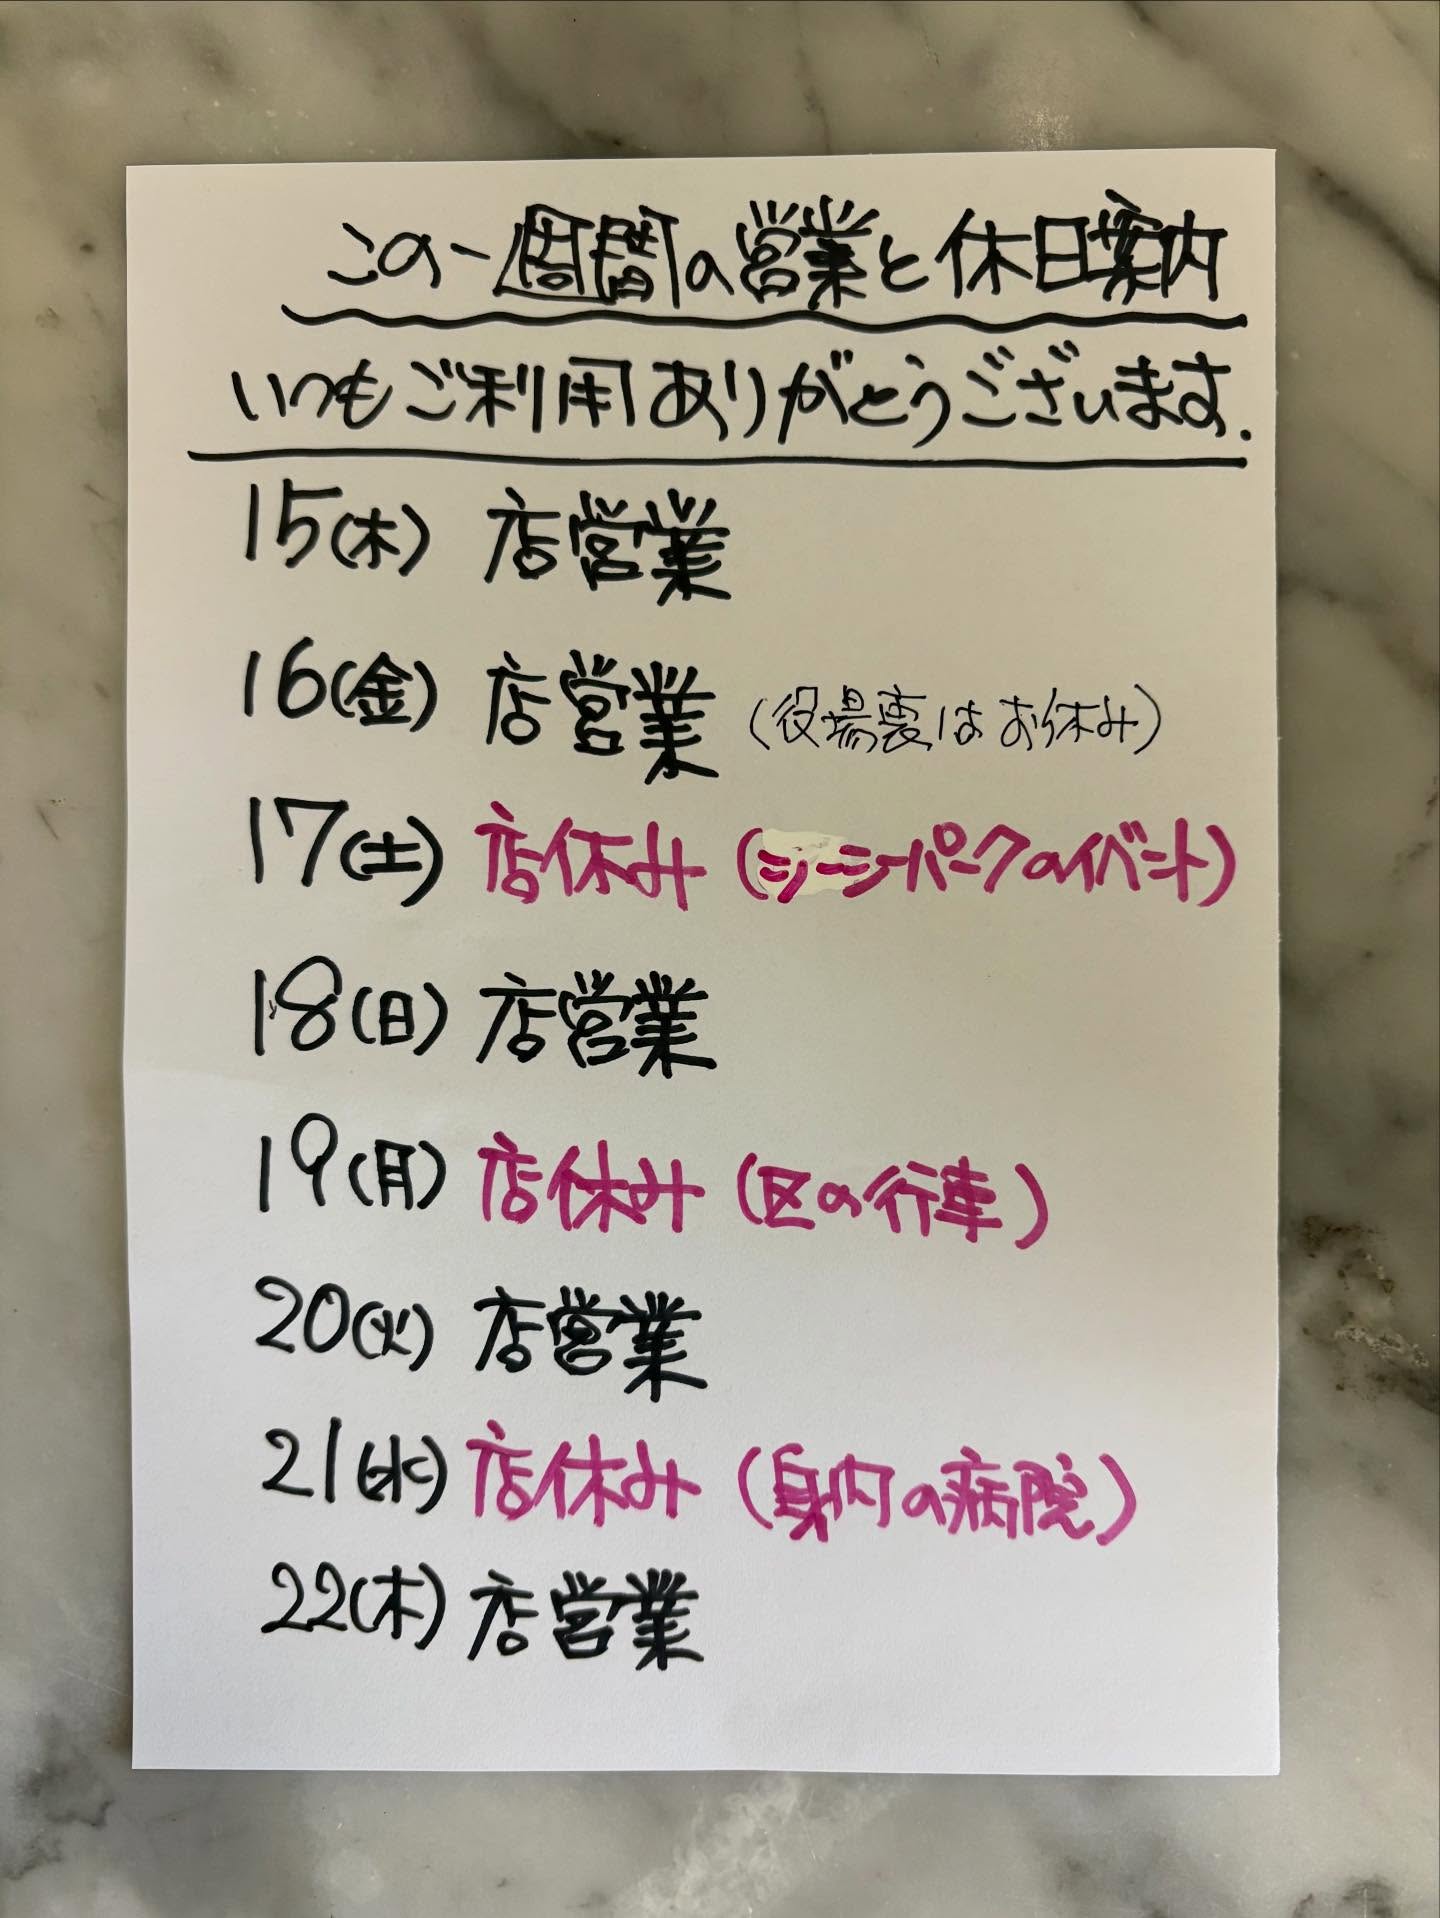 この一週間の営業と休日案内
いつもご利用ありがとうございます.
15(木) 店営業
16(金) 店営業 (役場裏はお休み)
17(土) 店休み (シーシーパークのイベント)
18(日) 店営業
19(月) 店休み (区の行事)
20(火) 店営業
21(水) 店休み (身内の病院)
22(木) 店営業